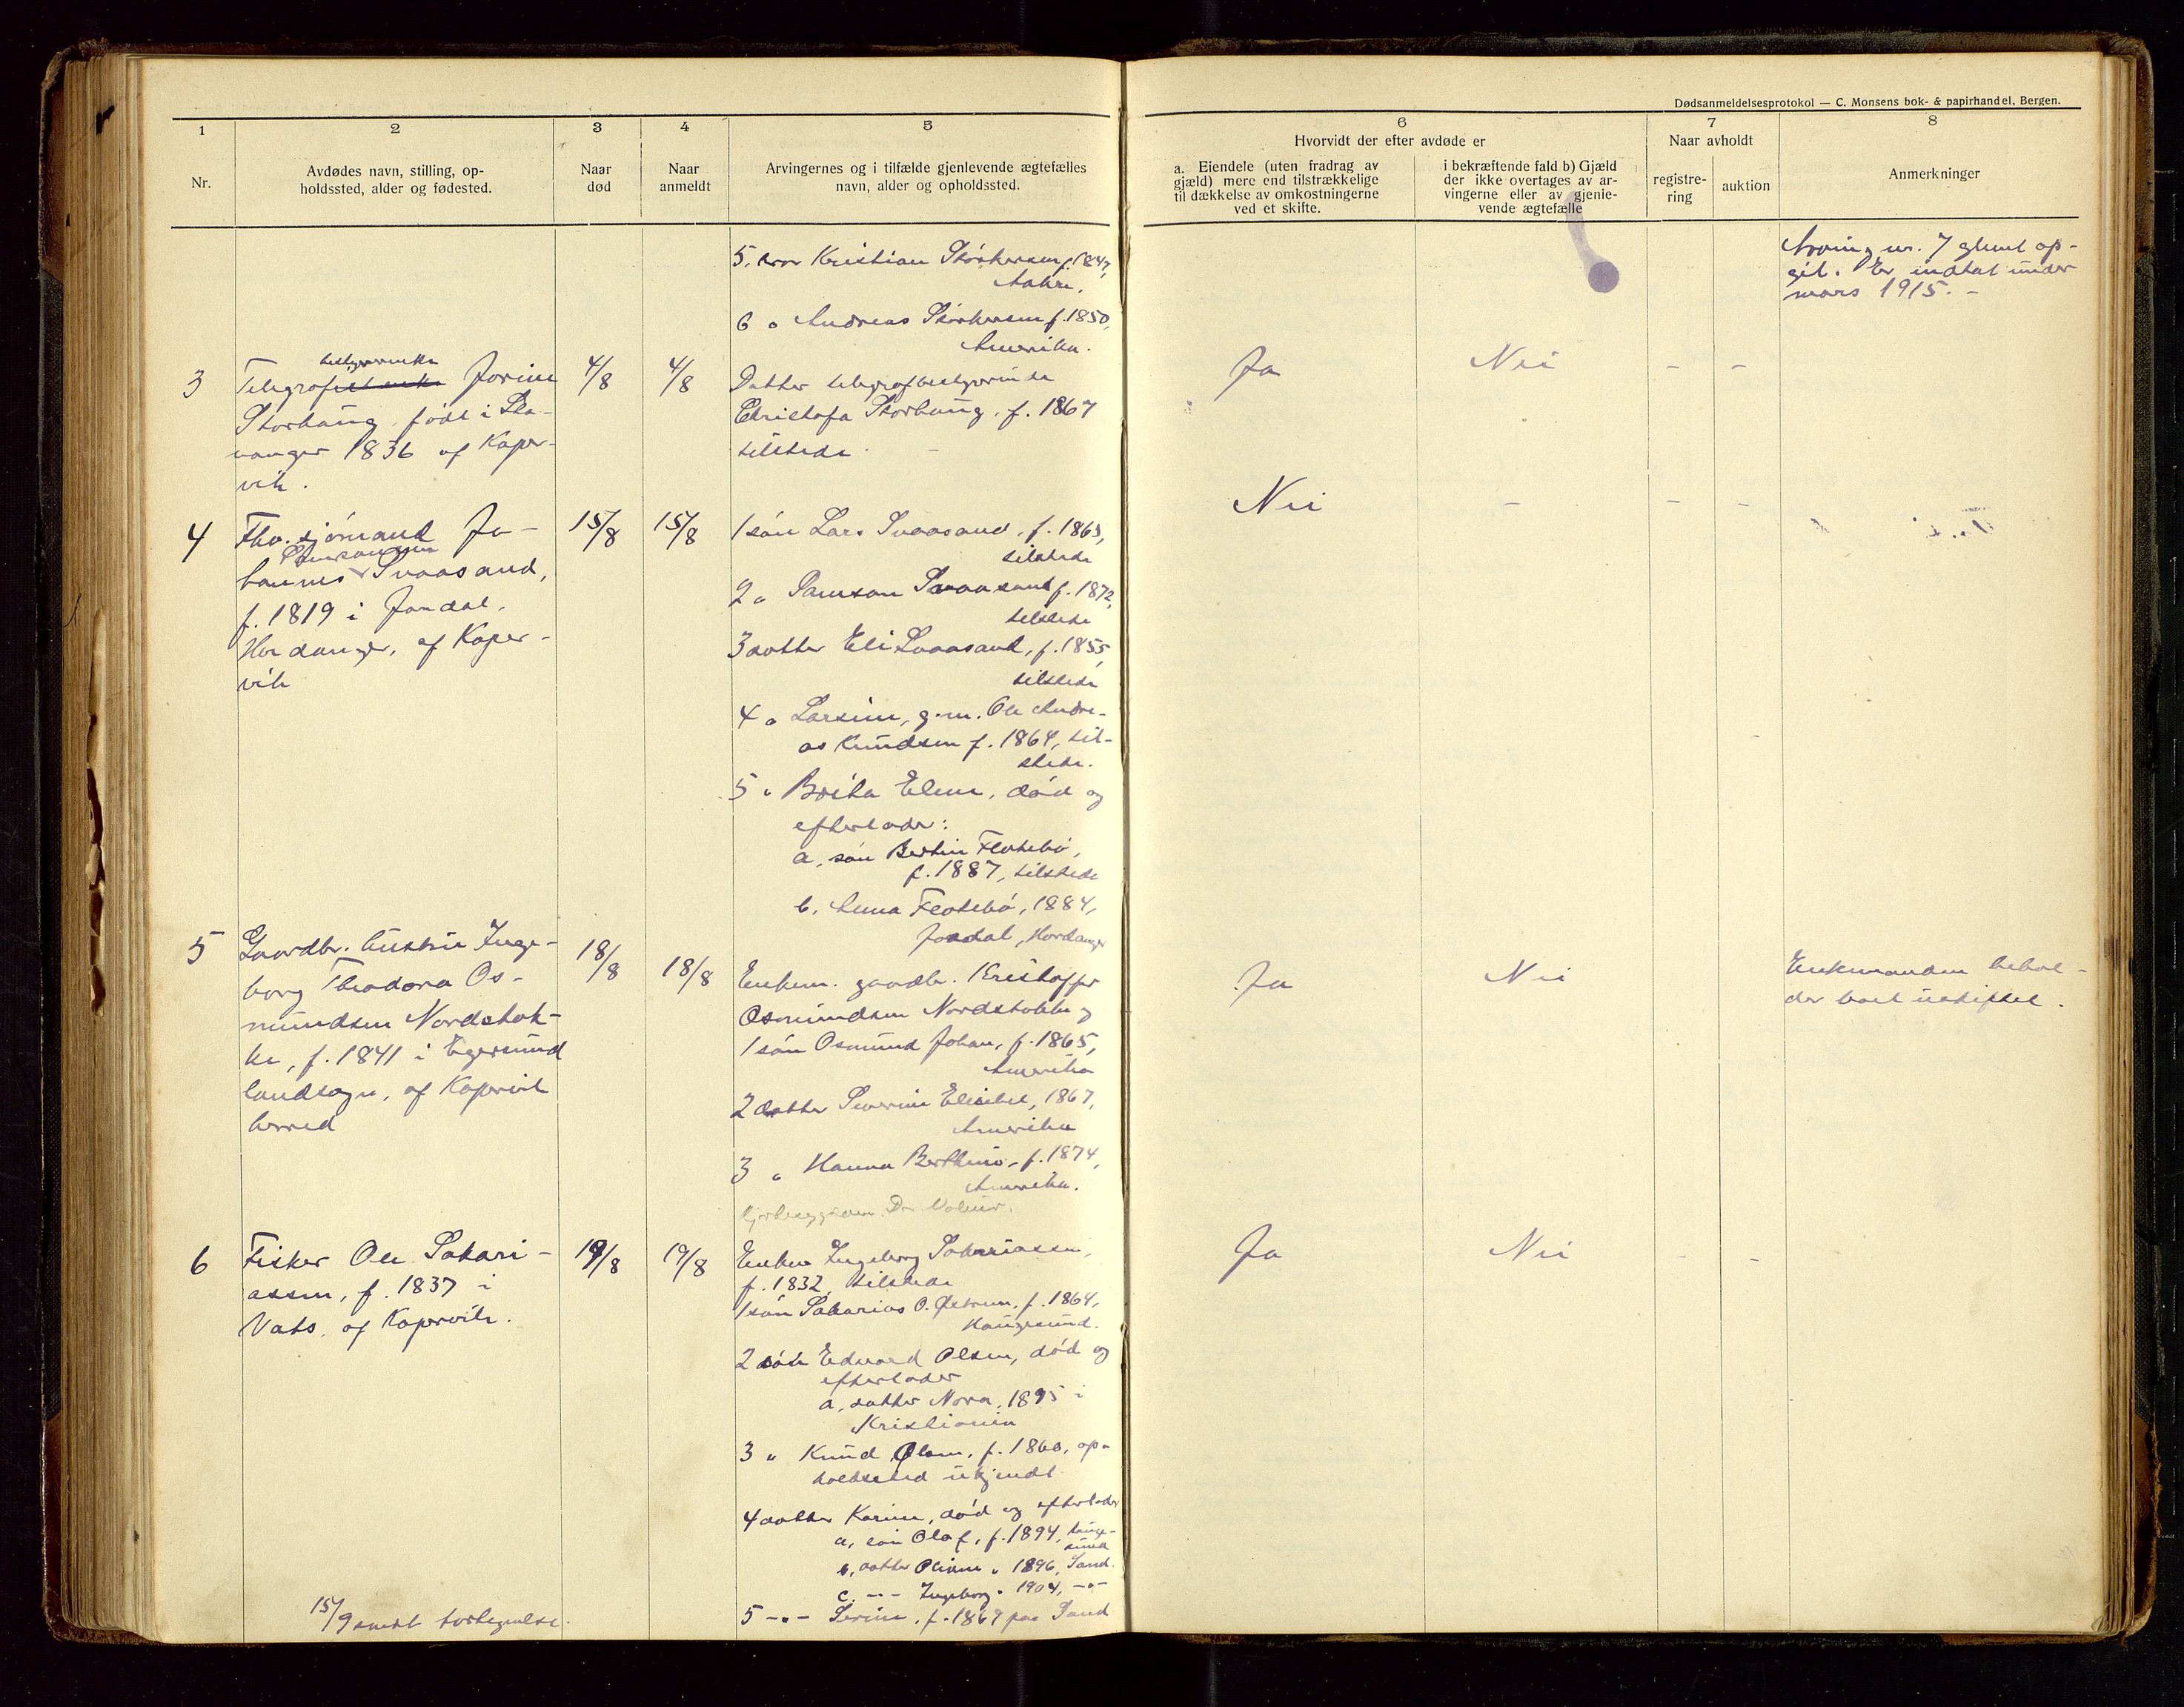 Dødsanmeldelsesprotokol — C. Monsens bok- & papirhandel, Bergen.
1
Nr.
2
Avdødes navn, stilling, op-
holdssted, alder og fødested.
3
Naar
død
4
Naar
anmeldt
5
Arvingernes og i tilfælde gjenlevende ægtefælles
navn, alder og opholdssted.
6
Hvorvidt der efter avdøde er
a. Eiendele (uten fradrag av
gjæld) mere end tilstrækkelige
til dækkelse av omkostningerne
ved et skifte.
i bekræftende fald b) Gjæld
der ikke overtages av ar-
vingerne eller av gjenle-
vende ægtefælle
7
Naar avholdt
registre-
ring
auktion
8
Anmerkninger
5. bror Kristian Størkersen f. 1847,
6 " Andreas Størkersen f. 1850,
Amerika.
Arving nr. 7 glemt op-
git. Er indtat under
mars 1915. -
3
bestyrerinde
Telegraf Jorine
Storhaug, født i Sta-
vanger 1836 af Koper-
vik.
4/8
4/8
Datter telegrafbestyrerinde
Christofa Storhaug, f. 1867
tilstede
Ja
Nei
-
-
4
Fhv. sjømand Jo-
Samsonsen
hannes Svaasand,
f. 1819 i Jondal,
Hardanger, af Koper-
vik
15/8
15/8
1 søn Lars Svaasand, f. 1863,
tilstede
2 " Samson Svaasand f. 1872,
tilstede
3 datter Eli Svaasand, f. 1855,
tilstede
4 " Larsine, g. m. Ole Andre-
as Knudsen f. 1864, til-
stede.
5 " Brita Elene, død og
efterlader:
a, søn Bertin Flotebø,
f. 1887, tilstede
b, Anna Flotebø, 1884,
Jondal, Hardanger
Nei
-
-
-
5
Gaardbr. hustru Inge-
borg Theodora Os-
mundsen Nordstok-
ke, f. 1841 i Egersund
landsogn, af Kopervik
herred
18/8
18/8
Enkem. gaardbr. Kristoffer
Osmundsen Nordstokke og
1 søn Osmund Johan, f. 1865,
Amerika
2 datter Severine Elisabet, 1867,
Amerika
3 " Hanna Berthine, f. 1874,
Amerika.
Ja
Nei
Enkemanden behol-
der boet uskiftet.
6
Fisker Ole Sakari-
assen, f. 1837 i
Vats, af Kopervik.
19/8
19/8
Enken Ingeborg Sakariassen,
f. 1832, tilstede
1 søn Sakarias O. f. 1864,
Haugesund.
2 søn Edvard Olsen, død og
efterlader
a, datter Nora, 1895 i
Kristiania
3 " Knud Olsen, f. 1860, op-
holdssted ukjendt
4 datter Karine, død og efterlader
a, søn Olaf, f. 1894, Hauge-
sund
b, datter " 1896, Sand.
c. -"- Ingeborg " 1904, -"-
5 -"- Serine, f. 1869 paa Sand
Ja
Nei
-
-
15/9 sendt fortegnelse.